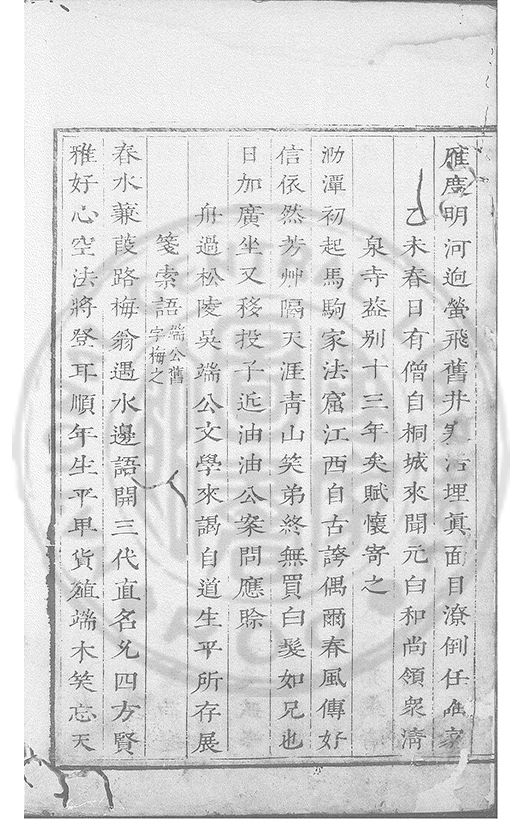 雁度明河逈螢飛舊井生活埋眞面目潦倒任
乙未春日有僧自桐城來聞元白和尚領衆淸
泉寺葢別十三年矣賦懷寄之
泐潭初起馬駒家法窟江西自古誇偶爾春風傳好
信依然芳艸隔天涯靑山笑弟終無買白髮如兄也
日加廣坐又移投子近油油公案問應賒
舟過松陵吳端公文學來謁自道生平所存展
箋索語端公舊字梅之
春水蒹葭路梅翁遇水邊語開三代直名允四方賢
雅好心空法將登耳順年生平畢貨殖端木笑忘天